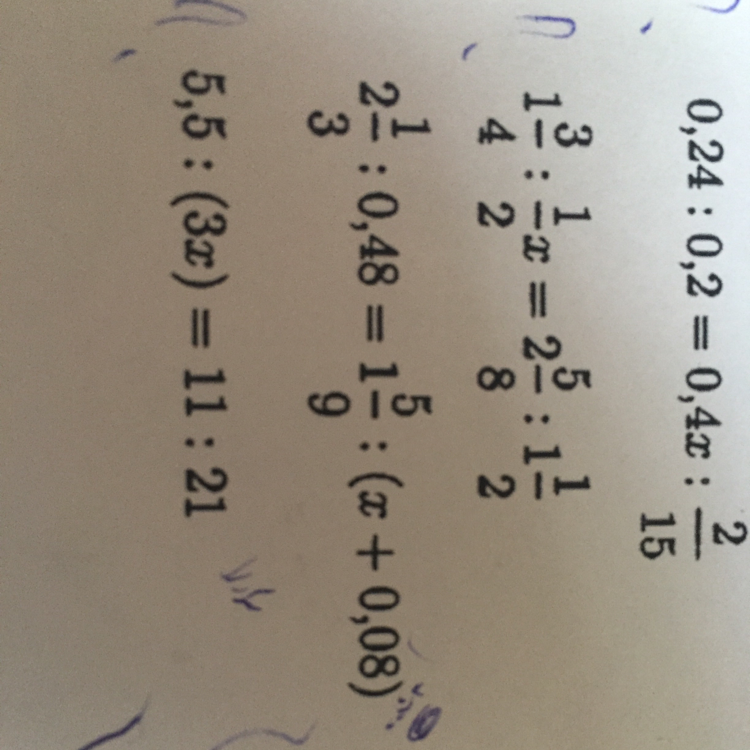 0,24 : 0,2 = 0,4x : 2/15
1 3/4 : 1/2 x = 2 5/8 : 1 1/2
2 1/3 : 0,48 = 1 5/9 : (x + 0,08)
5,5 : (3x) = 11 : 21